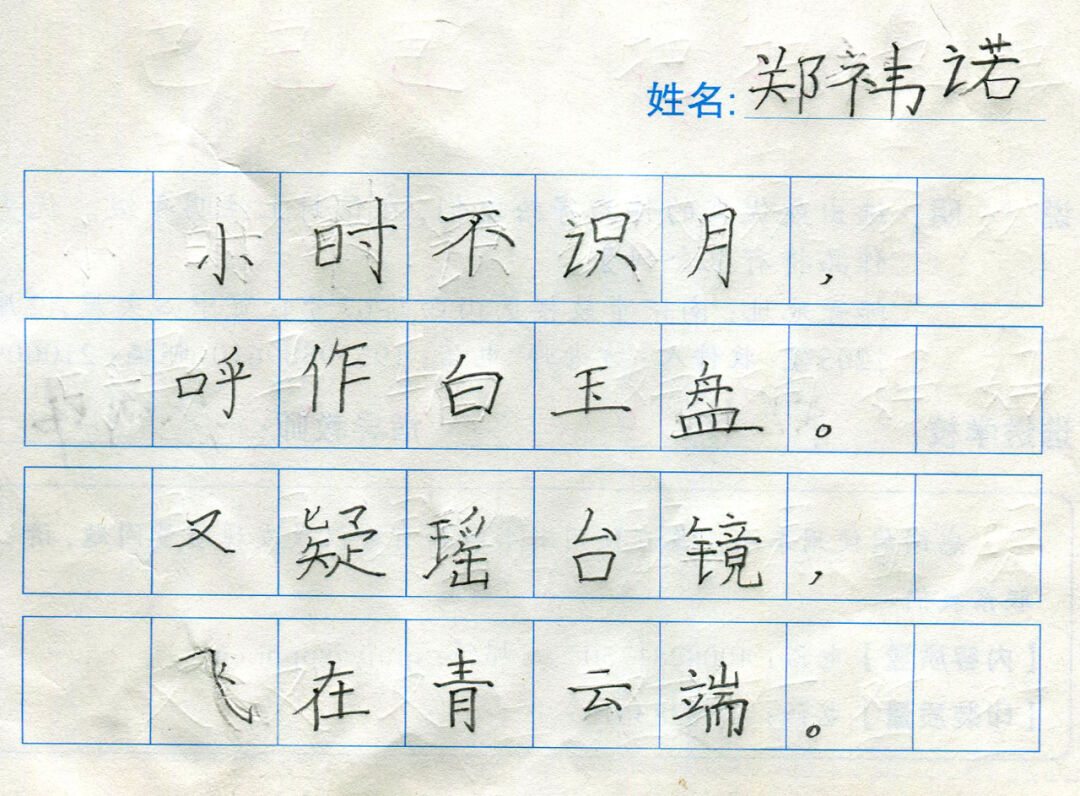 姓名: 郑祎诺
小时不识月，
呼作白玉盘。
又疑瑶台镜，
飞在青云端。